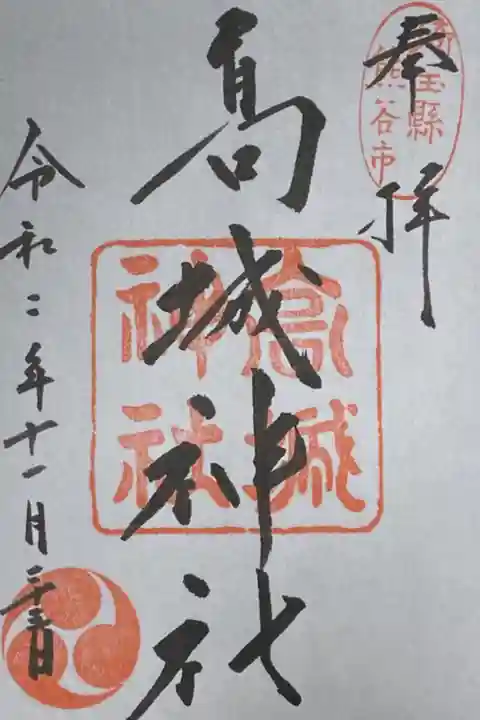 奉拝
埼玉縣
熊谷市
高城神社
高城
神社
令和二年十一月二十五日